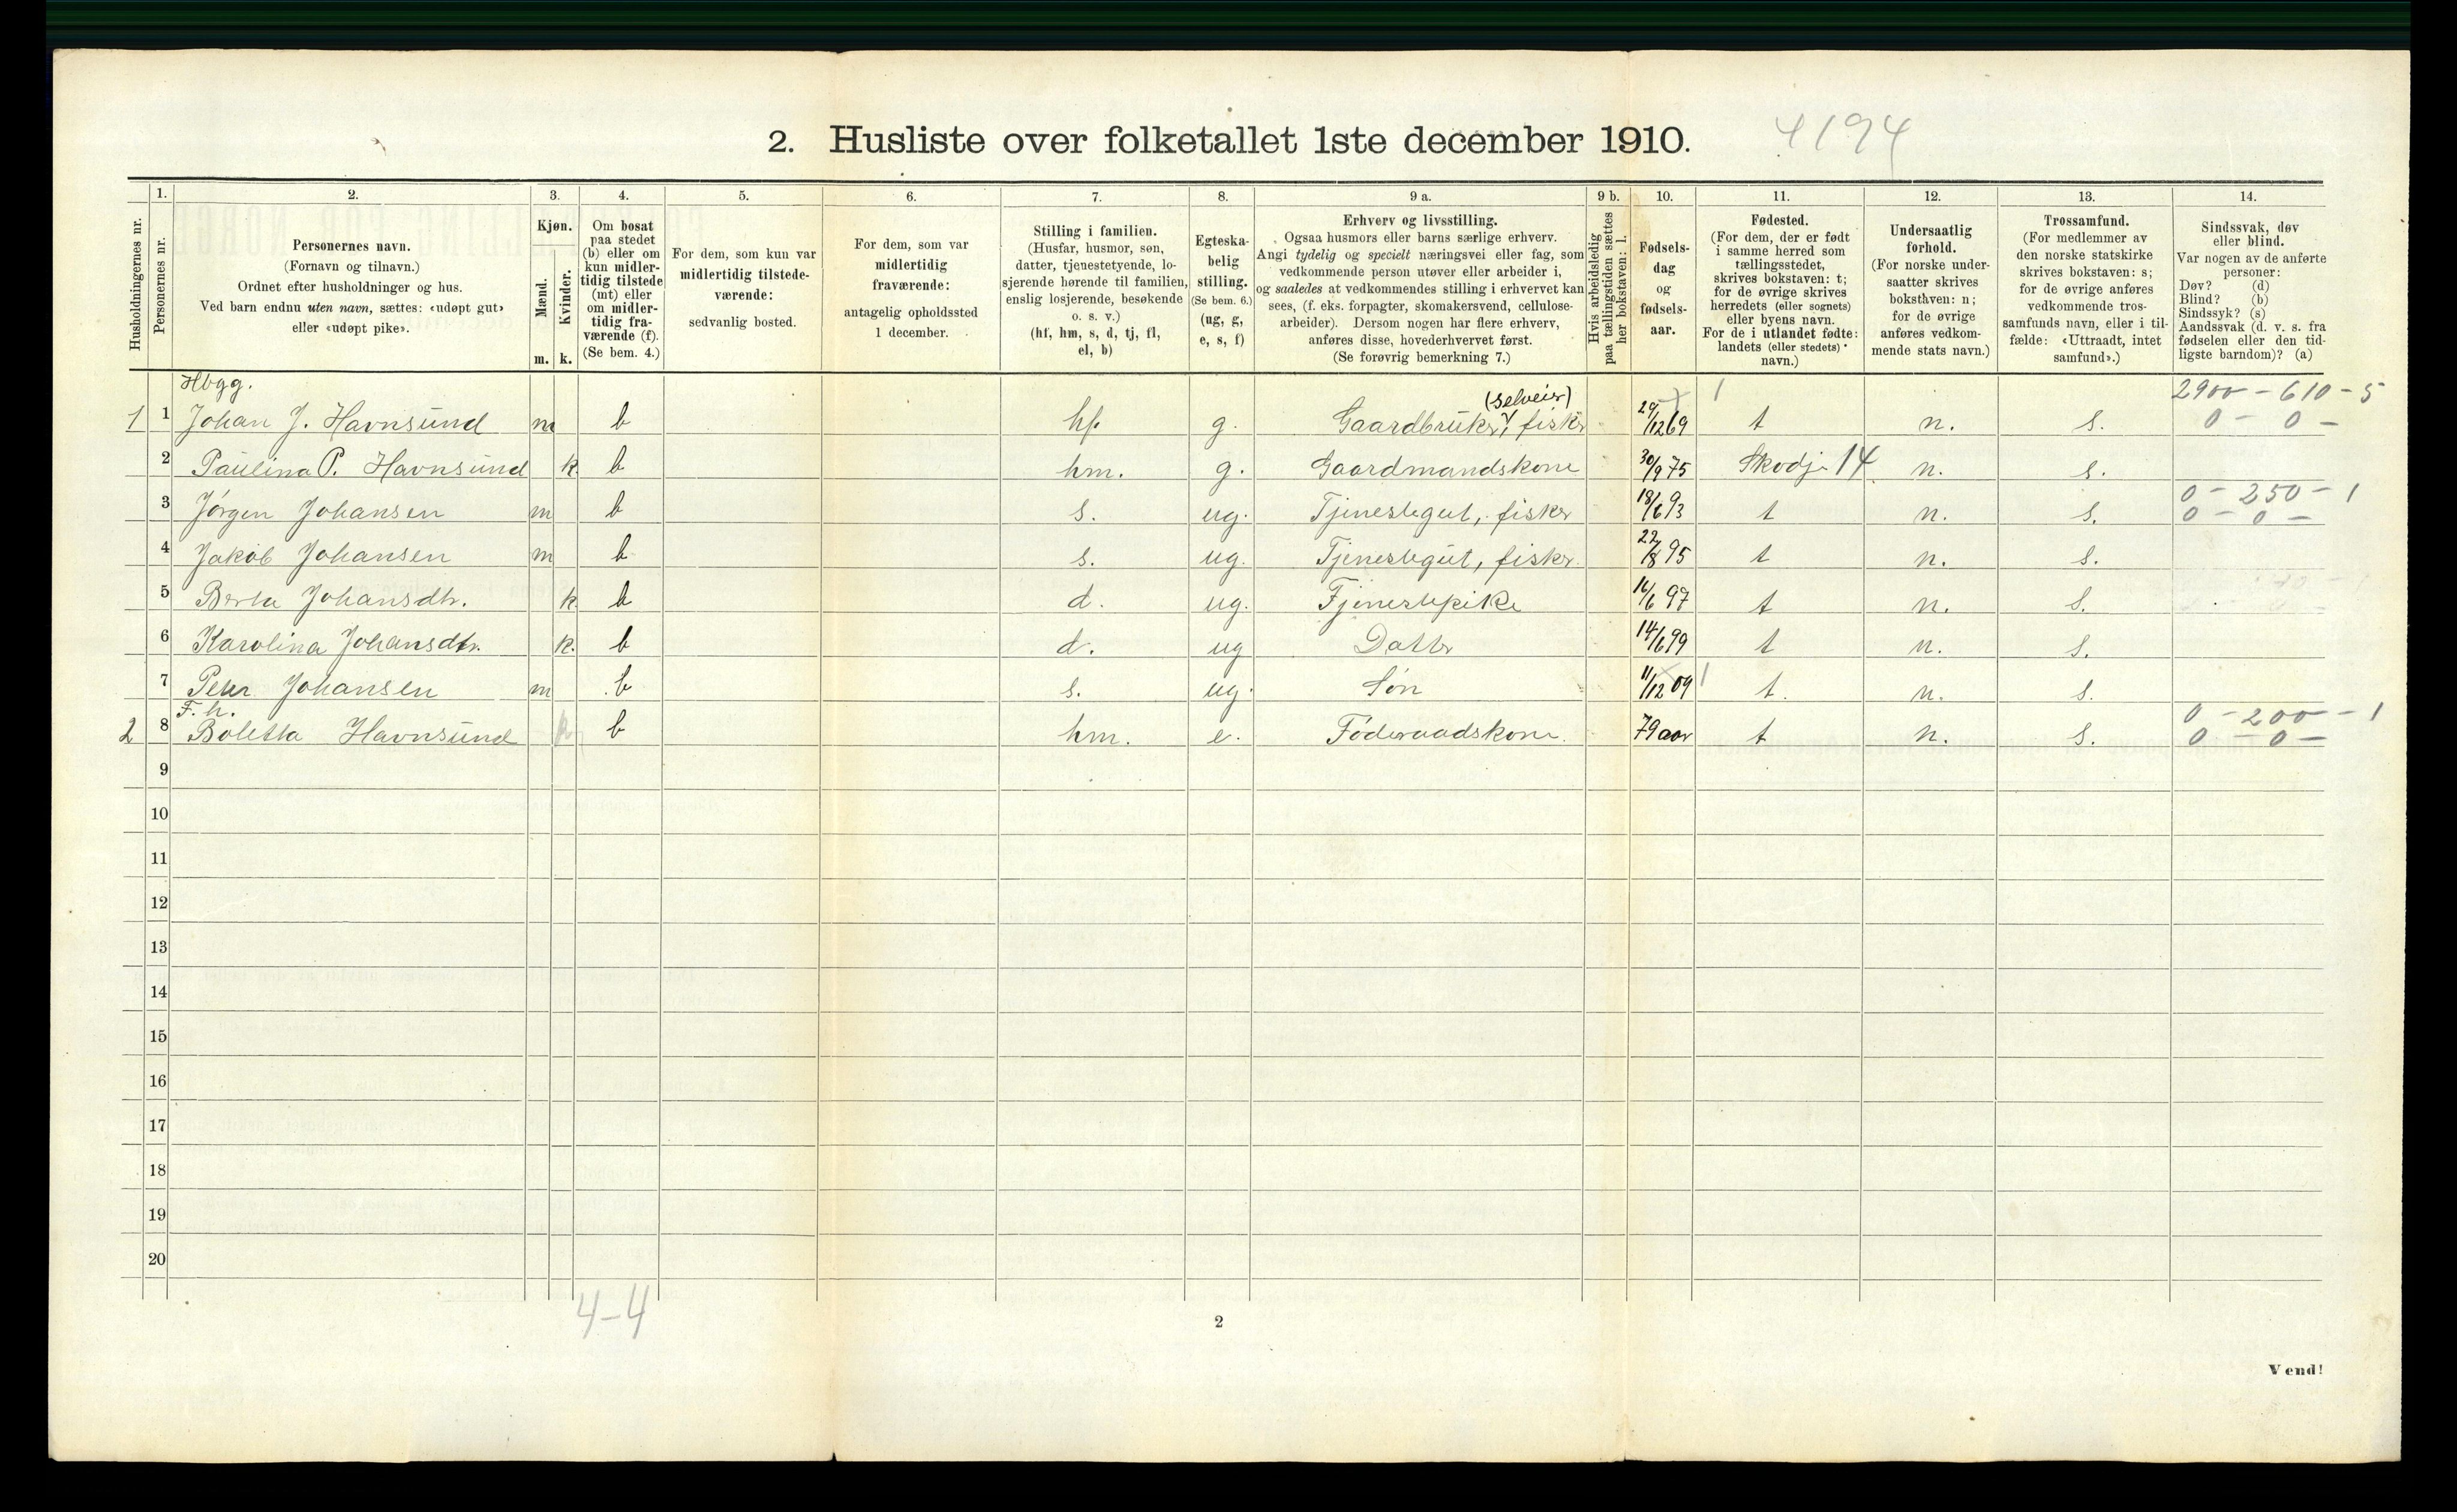 2. Husliste over folketallet 1ste december 1910.
4194
Husholdningernes nr.
1.
Personernes nr.
2.
Personernes navn.
(Fornavn og tilnavn.)
Ordnet efter husholdninger og hus.
Ved barn endnu uten navn, sættes: «udøpt gut»
eller «udøpt pike».
3.
Kjøn.
Mænd.
Kvinder.
m. k.
4.
Om bosat
paa stedet
(b) eller om
kun midler-
tidig tilstede
(mt) eller
om midler-
tidig fra-
værende (f).
(Se bem. 4.)
5.
For dem, som kun var
midlertidig tilstede-
værende:
sedvanlig bosted.
6.
For dem, som var
midlertidig
fraværende:
antagelig opholdssted
1 december.
7.
Stilling i familien.
(Husfar, husmor, søn,
datter, tjenestetyende, lo-
sjerende hørende til familien,
enslig losjerende, besøkende
o. s. v.)
(hf, hm, s, d, tj, fl,
el, b)
8.
Egteska-
belig
stilling.
(Se bem. 6.)
(ug, g,
e, s, f)
9 a.
Erhverv og livsstilling.
Ogsaa husmors eller barns særlige erhverv.
Angi tydelig og specielt næringsvei eller fag, som
vedkommende person utøver eller arbeider i,
og saaledes at vedkommendes stilling i erhvervet kan
sees, (f. eks. forpagter, skomakersvend, cellulose-
arbeider). Dersom nogen har flere erhverv,
anføres disse, hovederhvervet først.
(Se forøvrig bemerkning 7.)
9 b.
Hvis arbeidsledig
paa tællingstiden sættes
her bokstaven: l.
10.
Fødsels-
dag
og
fødsels-
aar.
11.
Fødested.
(For dem, der er født
i samme herred som
tællingsstedet,
skrives bokstaven: t;
for de øvrige skrives
herredets (eller sognets)
eller byens navn.
For de i utlandet fødte:
landets (eller stedets)
navn.)
12.
Undersaatlig
forhold.
(For norske under-
saatter skrives
bokstaven: n;
for de øvrige
anføres vedkom-
mende stats navn.)
13.
Trossamfund.
(For medlemmer av
den norske statskirke
skrives bokstaven: s;
for de øvrige anføres
vedkommende tros-
samfunds navn, eller i til-
fælde: «Uttraadt, intet
samfund».)
14.
Sindssvak, døv
eller blind.
Var nogen av de anførte
personer:
Døv? (d)
Blind? (b)
Sindssyk? (s)
Aandssvak (d. v. s. fra
fødselen eller den tid-
ligste barndom)? (a)
Hbgg. 2900 - 610 - 5
(selveier)
1 1 Johan J. Havnsund m b hf. g. Gaardbruker, fisker 29/12 69 t n. s. 0 - 0 -
2 Paulina P. Havnsund k b hm. g. Gaardmandskone 30/9 75 Skodje 14 n. s.
0 - 250 - 1
3 Jørgen Johansen m b s. ug. Tjenestegut, fisker 18/6 93 t n. s. 0 - 0 -
4 Jakob Johansen m b s. ug. Tjenestegut, fisker 22/8 95 t n. s.
5 Berta Johansdtr. k b d. ug. Tjenestepike 16/6 97 t n. s.
6 Karolina Johansdtr. k. b d. ug Datter 14/6 99 t n. s.
7 Peter Johansen m b s. ug. Søn 11/12 09 t. n. s.
F. h. 0 - 200 - 1
2 8 Boletta Havnsund k b hm. e. Føderaadskone. 79 aar t n. s. 0 - 0 -
9
10
11
12
13
14
15
16
17
18
19
20
4-4
2
Vend!